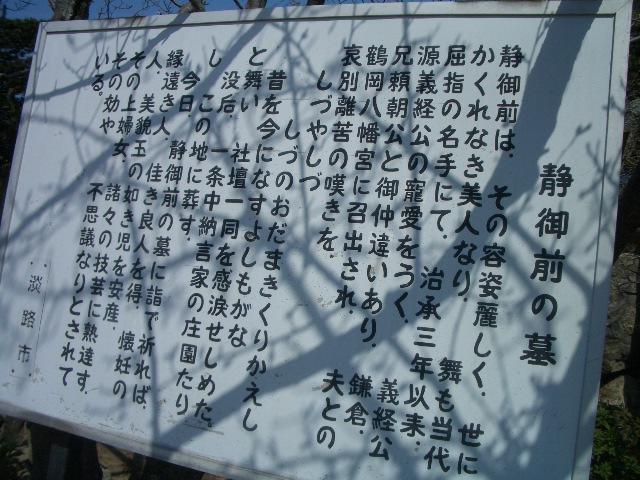 静御前の墓
静御前は、その容姿麗しく、世に
かくれなき美人なり、舞も当代
屈指の名手にて、治承三年以来、
源義経公の寵愛をうく、義経公
兄頼朝公と御仲違いあり、鎌倉、
鶴岡八幡宮に召出され、夫との
哀別離苦の嘆きを、
しづやしづ
しづのおだまきくりかえし
昔を今になすよしもがな
と舞い、社壇一同を感涙せしめた。
没后、一条中納言家の庄園たり
し、この地に葬す。
今日、静御前の墓に詣で祈れば、
縁遠き人、佳き良人を得、懐妊の
人、美貌玉の如き児を安産、
その上婦女、諸々の技芸に熟達す。
その効や、不思議なりとされて
いる。
淡路市